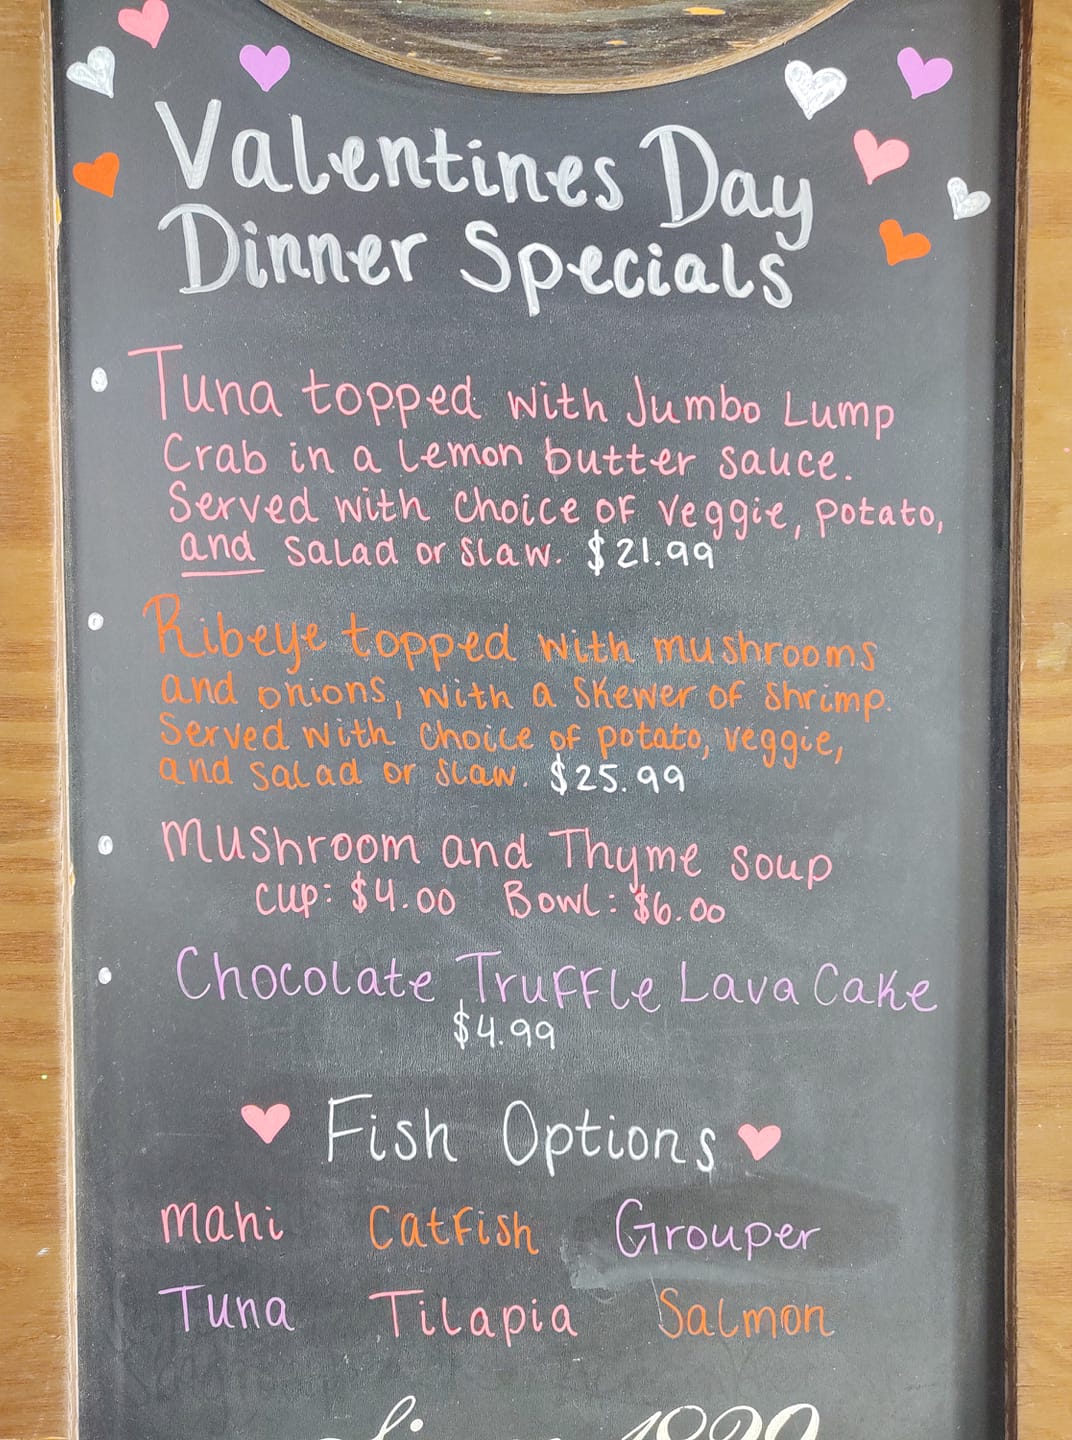 Valentines Day
Dinner Specials
Tuna topped with Jumbo Lump
Crab in a lemon butter sauce.
Served with choice of veggie, potato,
and salad or slaw. $21.99
Ribeye topped with mushrooms
and onions, with a skewer of shrimp.
Served with choice of potato, veggie,
and salad or slaw. $25.99
Mushroom and Thyme soup
Cup: $4.00 Bowl: $6.00
Chocolate Truffle Lava Cake
$4.99
Fish Options
Mahi Catfish Grouper
Tuna Tilapia Salmon